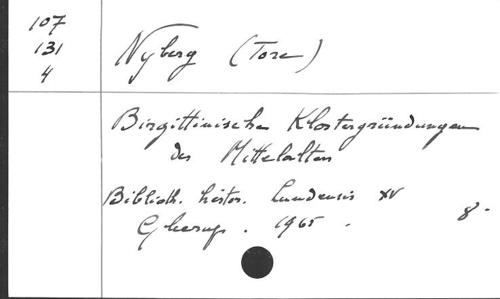 107
131
4
Nyberg (Tore)
Birgittinische Klostergründungen
des Mittelalters
Biblioth. histor. Lundensis XV
Gleerup. 1965.
8-